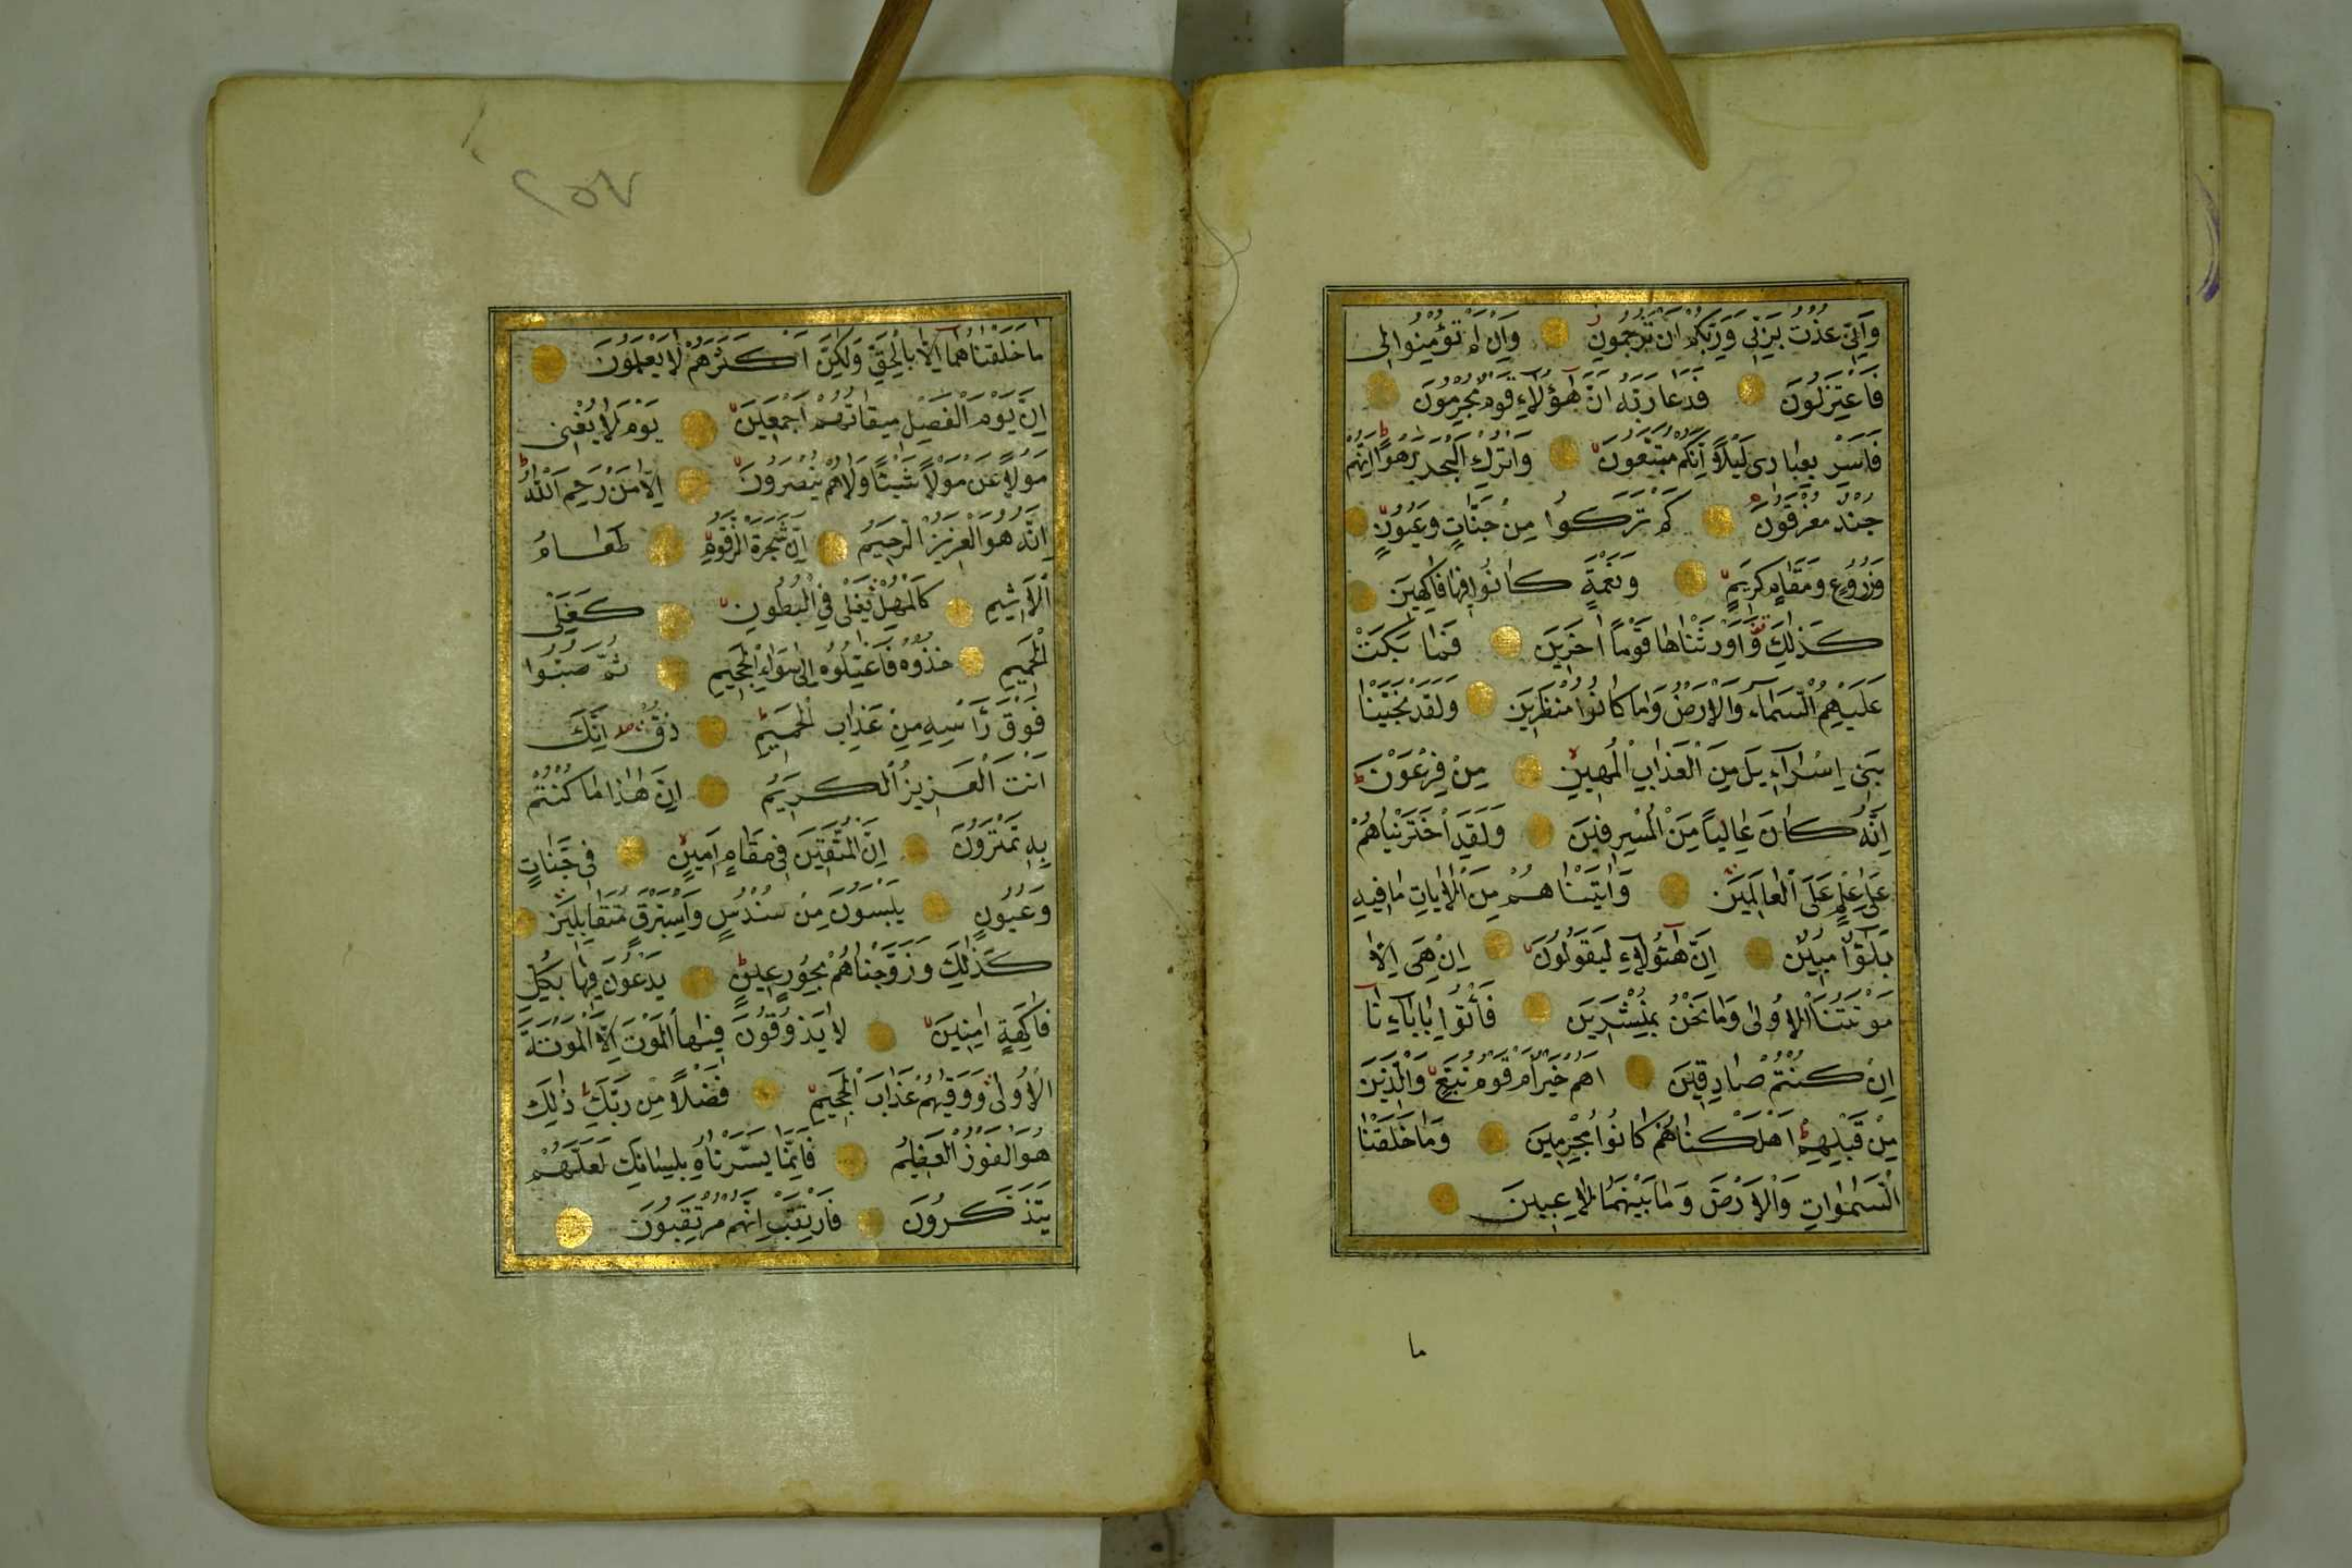 وَاِنّٖي عُذْتُ بِرَبّٖي وَرَبِّكُمْ اَنْ تَرْجُمُونِ وَاِنْ لَمْ تُؤْمِنُوا لٖي
فَاعْتَزِلُونِ فَدَعَا رَبَّهُ اَنَّ هٰٓؤُلَاءِ قَوْمٌ مُجْرِمُونَ
فَاَسْرِ بِعِبَادٖي لَيْلًا اِنَّكُمْ مُتَّبَعُونَ وَاتْرُكِ الْبَحْرَ رَهْوًا اِنَّهُمْ
جُنْدٌ مُغْرَقُونَ كَمْ تَرَكُوا مِنْ جَنَّاتٍ وَعُيُونٍ
وَزُرُوعٍ وَمَقَامٍ كَرٖيمٍ وَنَعْمَةٍ كَانُوا فٖيهَا فَاكِهٖينَ
كَذٰلِكَ وَاَوْرَثْنَاهَا قَوْمًا اٰخَرٖينَ فَمَا بَكَتْ
عَلَيْهِمُ السَّمَاءُ وَالْاَرْضُ وَمَا كَانُوا مُنْظَرٖينَ وَلَقَدْ نَجَّيْنَا
بَنٖي اِسْرَاءٖيلَ مِنَ الْعَذَابِ الْمُهٖينِ مِنْ فِرْعَوْنَ
اِنَّهُ كَانَ عَالِيًا مِنَ الْمُسْرِفٖينَ وَلَقَدِ اخْتَرْنَاهُمْ
عَلٰى عِلْمٍ عَلَى الْعَالَمٖينَ وَاٰتَيْنَاهُمْ مِنَ الْاٰيَاتِ مَا فٖيهِ
بَلٰٓؤٌا مُبٖينٌ اِنَّ هٰٓؤُلَاءِ لَيَقُولُونَ اِنْ هِيَ اِلَّا
مَوْتَتُنَا الْاُولٰى وَمَا نَحْنُ بِمُنْشَرٖينَ فَأْتُوا بِاٰبَائِنَا
اِنْ كُنْتُمْ صَادِقٖينَ اَهُمْ خَيْرٌ اَمْ قَوْمُ تُبَّعٍ وَالَّذٖينَ
مِنْ قَبْلِهِمْ اَهْلَكْنَاهُمْ كَانُوا مُجْرِمٖينَ وَمَا خَلَقْنَا
السَّمٰوَاتِ وَالْاَرْضَ وَمَا بَيْنَهُمَا لَاعِبٖينَ
ما
٢٥٧
مَا خَلَقْنَاهُمَا اِلَّا بِالْحَقِّ وَلٰكِنَّ اَكْثَرَهُمْ لَا يَعْلَمُونَ
اِنَّ يَوْمَ الْفَصْلِ مٖيقَاتُهُمْ اَجْمَعٖينَ يَوْمَ لَا يُغْنٖي
مَوْلًى عَنْ مَوْلًى شَيْئًا وَلَا هُمْ يُنْصَرُونَ اِلَّا مَنْ رَحِمَ اللّٰهُ
اِنَّهُ هُوَ الْعَزٖيزُ الرَّحٖيمُ اِنَّ شَجَرَةَ الزَّقُّومِ طَعَامُ
الْاَثٖيمِ كَالْمُهْلِ يَغْلٖي فِي الْبُطُونِ كَغَلْيِ
الْحَمٖيمِ خُذُوهُ فَاعْتِلُوهُ اِلٰى سَوَاءِ الْجَحٖيمِ ثُمَّ صُبُّوا
فَوْقَ رَأْسِهِ مِنْ عَذَابِ الْحَمٖيمِ ذُقْ اِنَّكَ
اَنْتَ الْعَزٖيزُ الْكَرٖيمُ اِنَّ هٰذَا مَا كُنْتُمْ
بِهِ تَمْتَرُونَ اِنَّ الْمُتَّقٖينَ فٖي مَقَامٍ اَمٖينٍ فٖي جَنَّاتٍ
وَعُيُونٍ يَلْبَسُونَ مِنْ سُنْدُسٍ وَاِسْتَبْرَقٍ مُتَقَابِلٖينَ
كَذٰلِكَ وَزَوَّجْنَاهُمْ بِحُورٍ عٖينٍ يَدْعُونَ فٖيهَا بِكُلِّ
فَاكِهَةٍ اٰمِنٖينَ لَا يَذُوقُونَ فٖيهَا الْمَوْتَ اِلَّا الْمَوْتَةَ
الْاُولٰى وَوَقٰيهُمْ عَذَابَ الْجَحٖيمِ فَضْلًا مِنْ رَبِّكَ ذٰلِكَ
هُوَ الْفَوْزُ الْعَظٖيمُ فَاِنَّمَا يَسَّرْنَاهُ بِلِسَانِكَ لَعَلَّهُمْ
يَتَذَكَّرُونَ فَارْتَقِبْ اِنَّهُمْ مُرْتَقِبُونَ